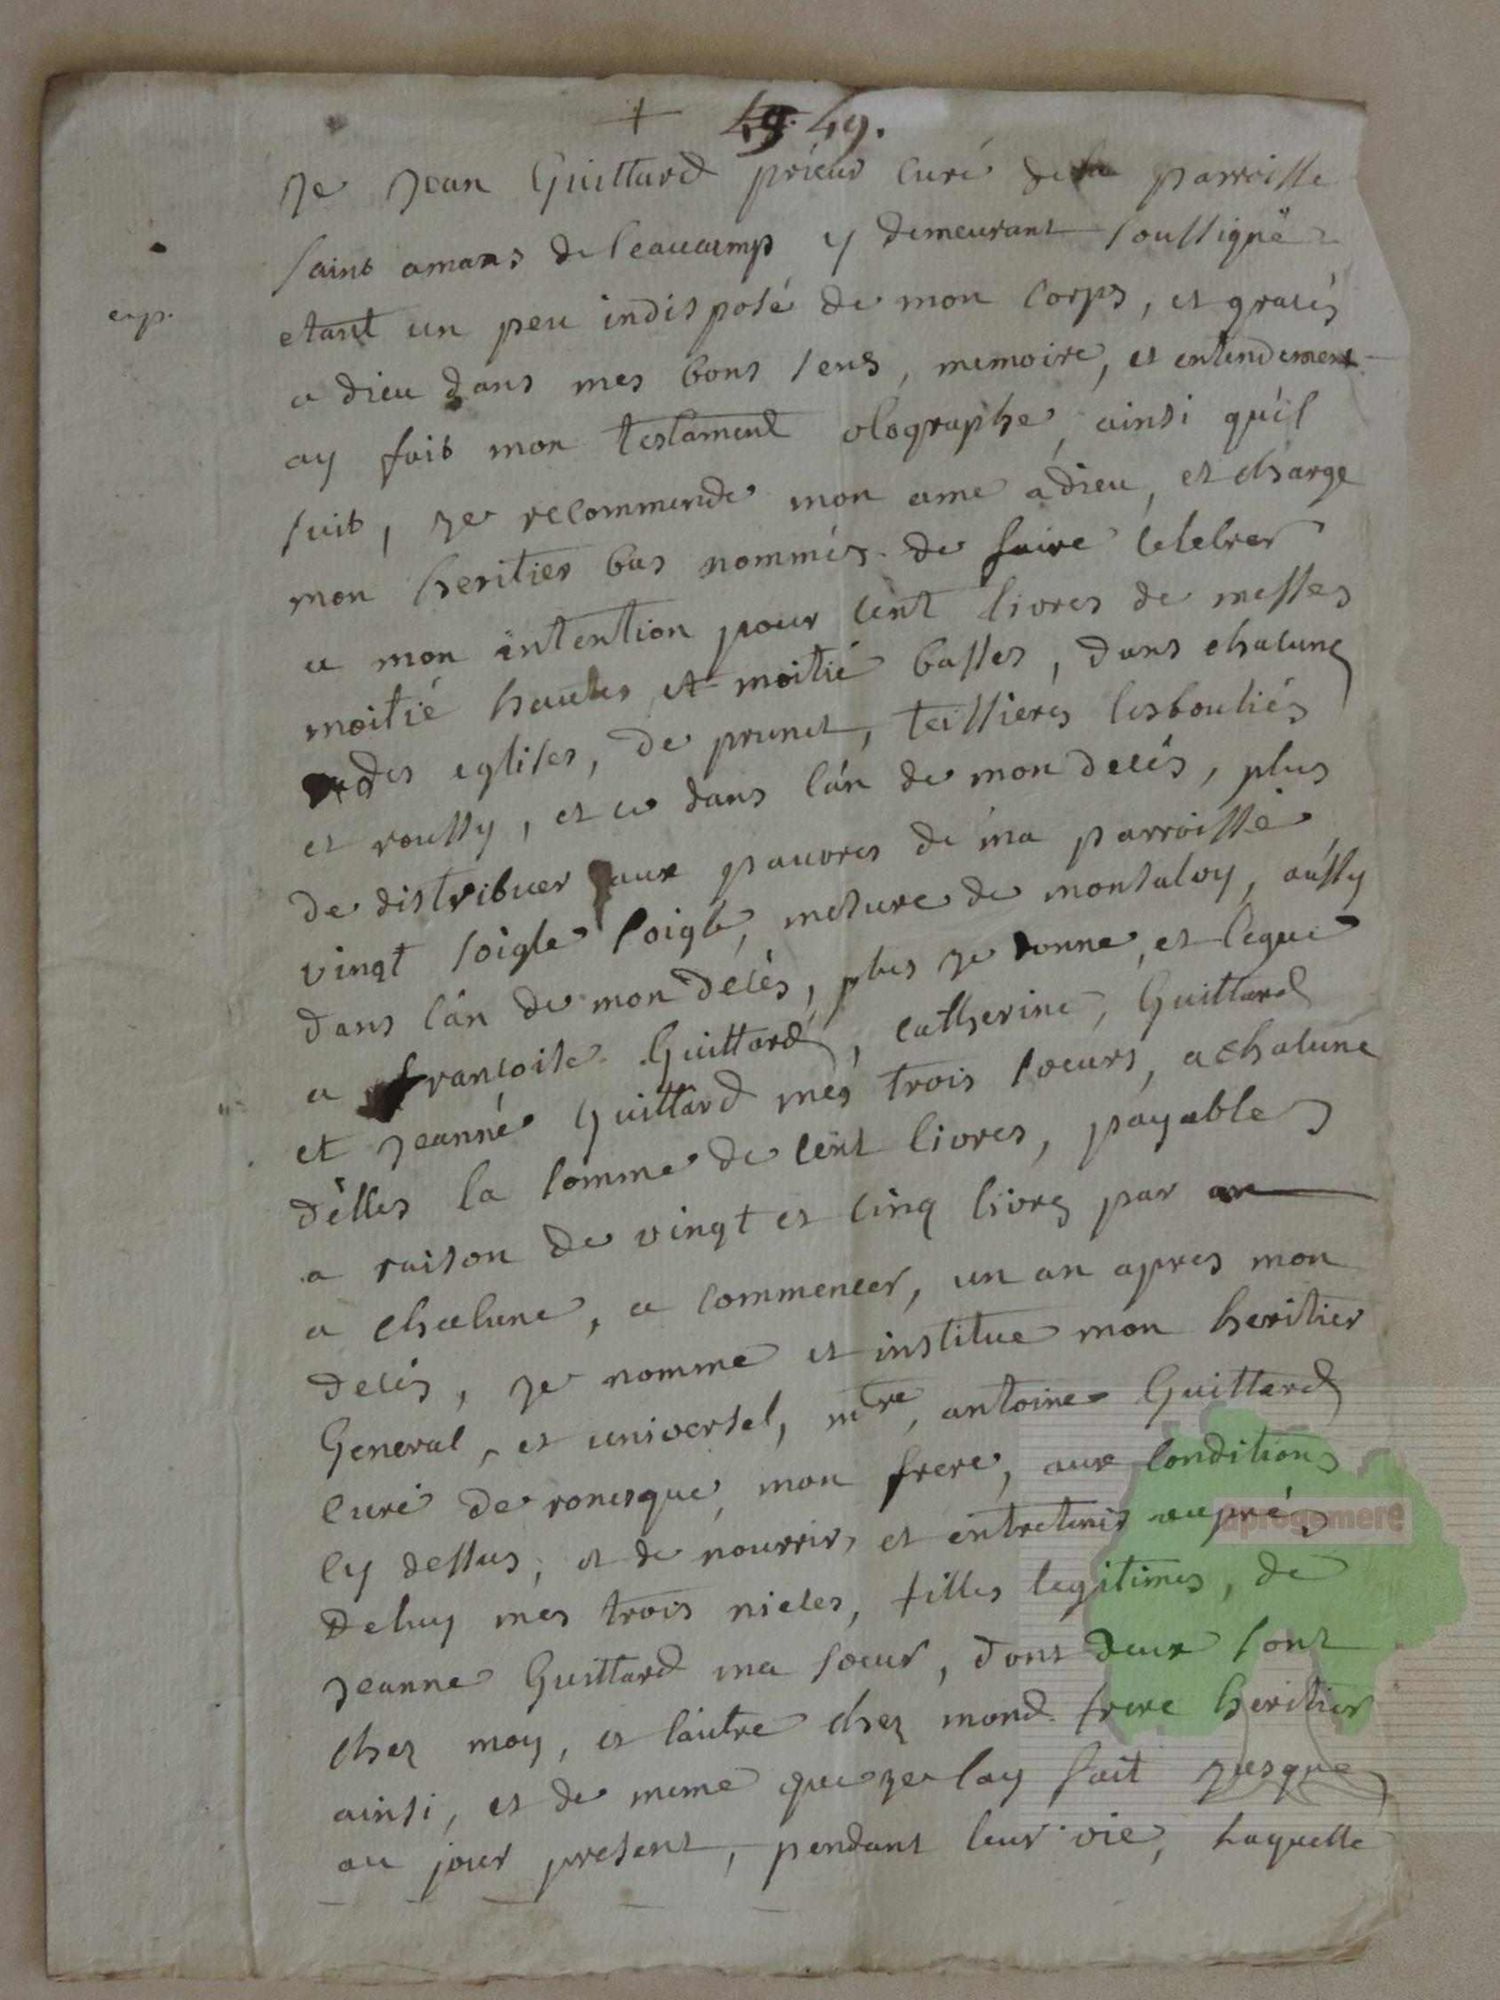 + 49. 49.
Je Jean Guittard prieur curé de la parroisse
saint amans de leaucamp y demeurant soussigné
etant un peu indisposé de mon corps, et graces
exp.
a dieu dans mes bons sens, memoire, et entendement
ay fait mon testament olographe, ainsi qu'il
suit, je recommende mon ame a dieu, et charge
mon heritier bas nommés de faire celebrer
a mon intention pour cent livres de messes
moitié hautes et moitié basses, dans chacune
des eglises, de prunet, teissieres lesbouliés
et roussy, et ce dans l'an de mon decés, plus
de distribuer aux pauvres de ma parroisse
vingt soigle soigle, mesure de montsalvy, aussy
dans l'an de mon decés, plus je donne, et legue
a francoise Guittard, catherine, Guittard
et jeanne Guittard mes trois soeurs, a chacune
d'elles la somme de cent livres, payables
a raison de vingt et cinq livres par an
a chacune, a commencer, un an apres mon
decés, je nomme et institue mon heritier
General, et universel, mre, antoine Guittard
curé de ronesque, mon frere, aux conditions
cy dessus, et de nourrir, et entretenir auprés
de luy mes trois nieces, filles legitimes, de
jeanne Guittard ma soeur, dont deux sont
chez moy, et l'autre chez mond. frere heritier
ainsi, et de meme que je lay fait jusque
au jour present, pendant leur vie, laquelle
aprogemere